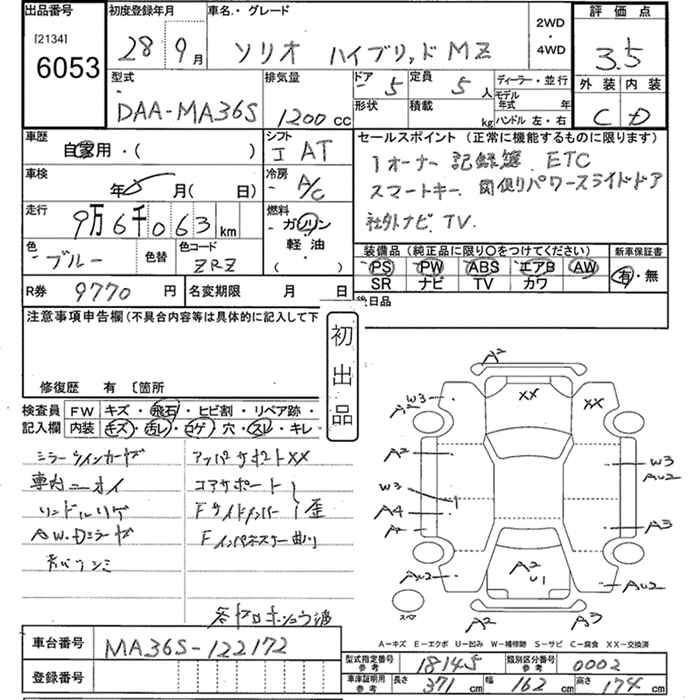 出品番号 初度登録年月 車名.・グレード 2WD ・ 4WD 評価点
[2134]
6053 28年9月 ソリオ ハイブリッドMZ 3.5
型式 排気量 ドア 5 定員 5人 ディーラー・並行 外装 内装
DAA-MA36S 1200cc 形状 積載 kg モデル年式 年 ハンドル 左・右 C D
車歴 自家用・( ) シフト I AT セールスポイント (正常に機能するものに限ります)
車検 年 月( 日) 冷房 A/C 1オーナー 記録簿 ETC
スマートキー. 両側パワースライドドア
走行 9万6千063km 燃料 ガソリン 軽油 ( ) 社外ナビ. TV.
色 ブルー 色替 色コード ZRZ 装備品 (純正品に限り○をつけてください) 新車保証書
PS PW ABS エアB AW 有・無
R券 9770円 名変期限 月 日 SR ナビ TV カワ
後日品
注意事項申告欄 (不具合内容等は具体的に記入して下
初出品
修復歴 有 〔箇所
検査員 FW キズ・飛石・ヒビ割・リペア跡・
記入欄 内装 キズ・汚レ・コゲ・穴・スレ・キレ
ミラーウインカーキズ アッパサポートXX
車内ニオイ コアサポート 歪
Fサイドメンバー
A.W.Dミラーキズ Fインパネスター曲り
A2
W3 XX XX
A2
A2 W3
AU2
W3
A4 A3
A2
AU2 A2 U1 AU2
スペア A2 A3
A-キズ E-エクボ U-凹み W-補修跡 S-サビ C-腐食 XX-交換済
車台番号 MA36S-122172 型式指定番号 参考 18145 類別区分番号 参考 0002
登録番号 車庫証明用 参考 長さ 371cm 幅 162cm 高さ 174cm